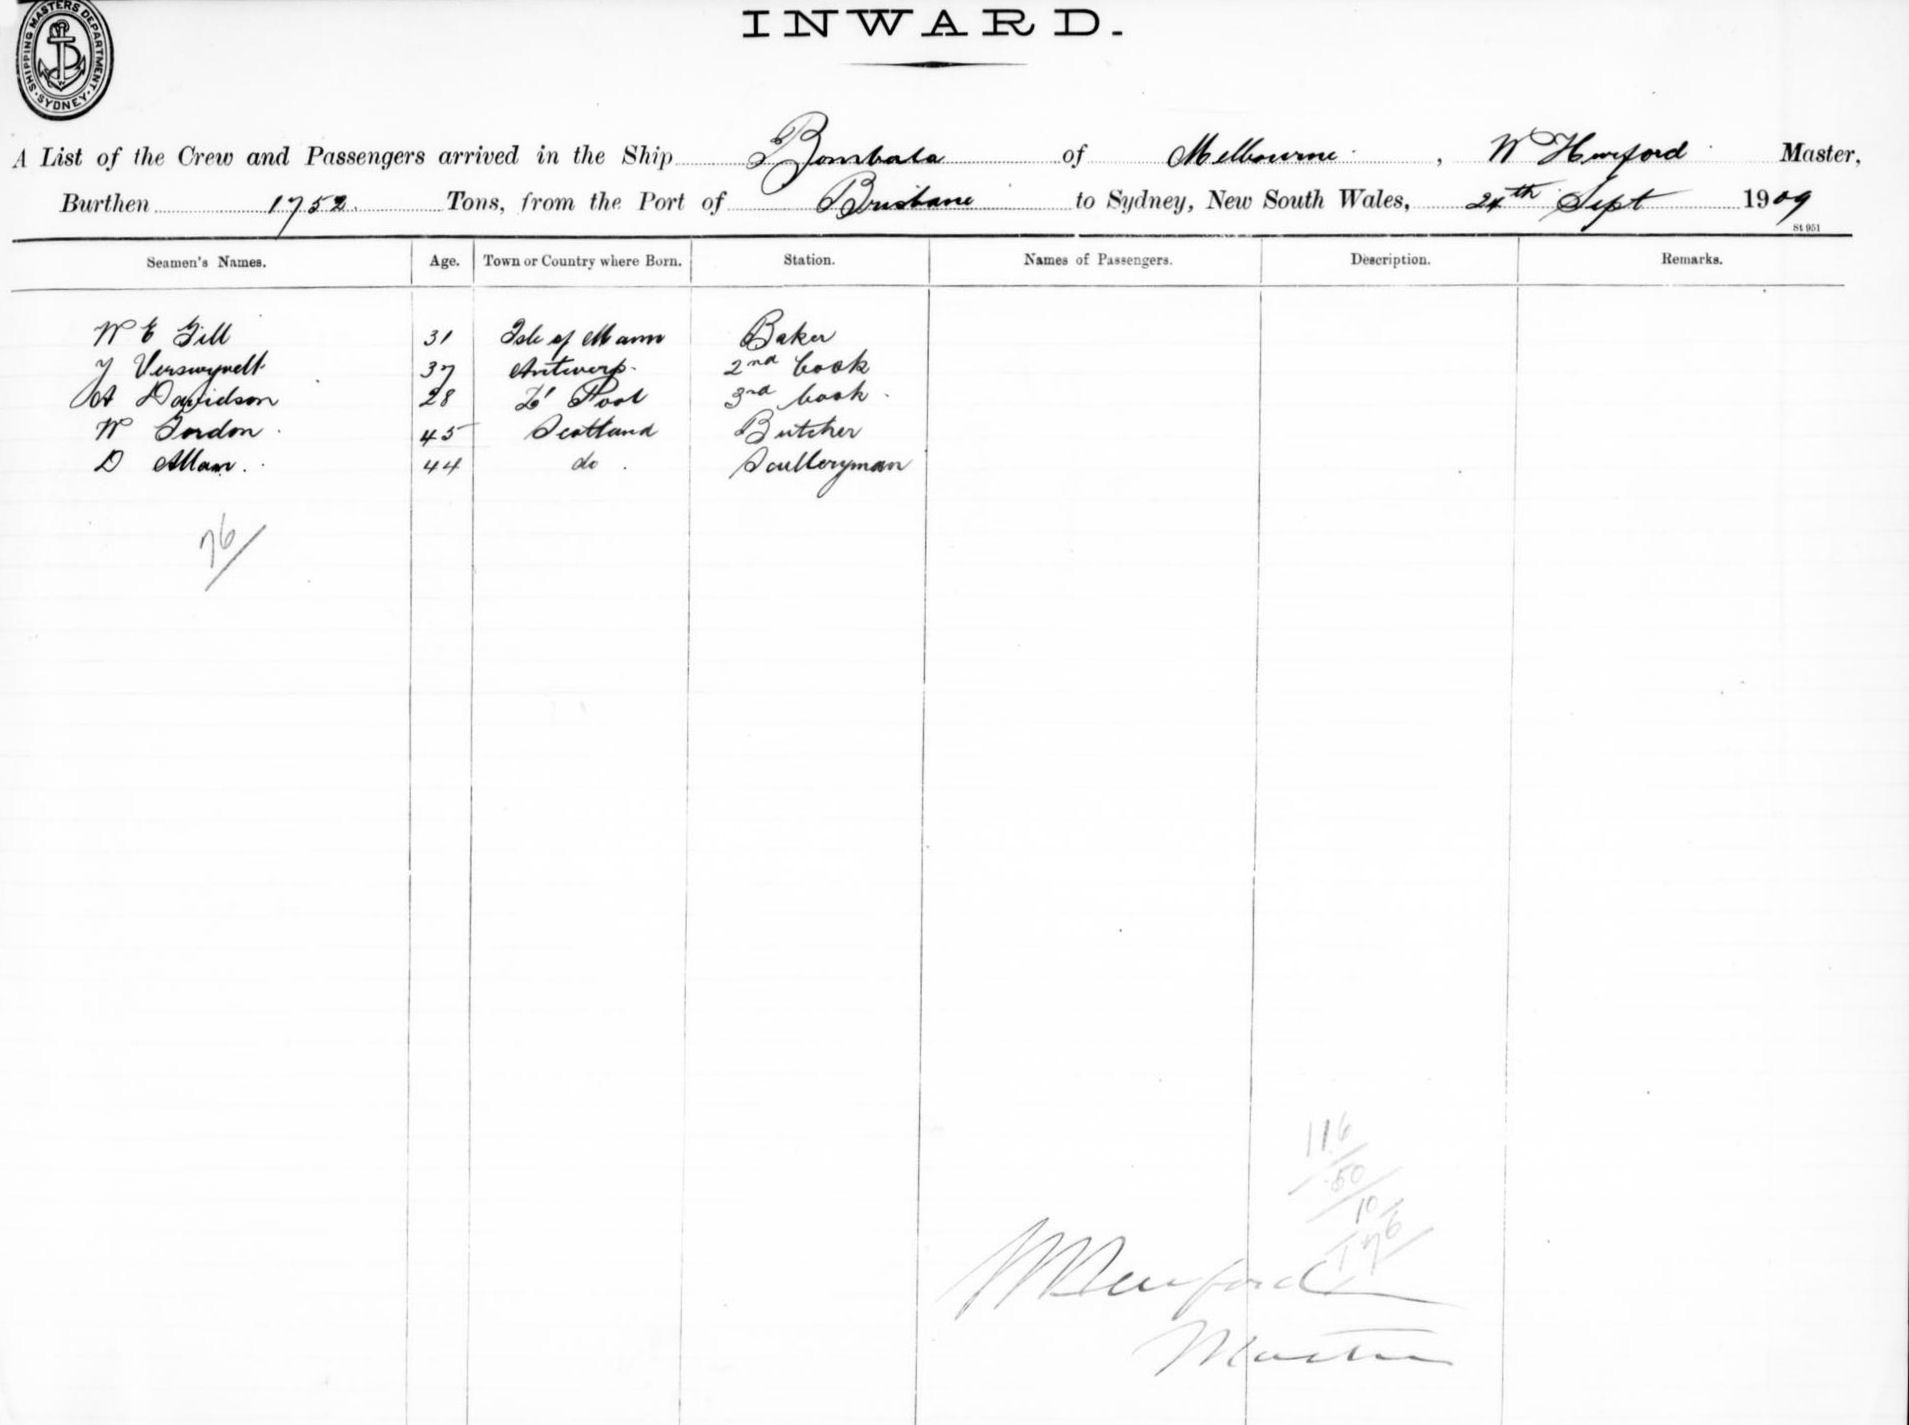 SHIPPING MASTERS DEPARTMENT. SYDNEY.
INWARD.
A List of the Crew and Passengers arrived in the Ship Bombala of Melbourne, W Hurford Master,
Burthen 1752 Tons, from the Port of Brisbane to Sydney, New South Wales, 24th Sept 1909
St 951
Seamen's Names. Age. Town or Country where Born. Station. Names of Passengers. Description. Remarks.
W E Gill 31 Isle of Mann Baker
J 37 Antwerp 2nd Cook
A Davidson 28 L'Pool 3rd Cook
W Gordon 45 Scotland Butcher
D Allan 44 do Sculleryman
76/
116
50
10
176
W Hurford
Master